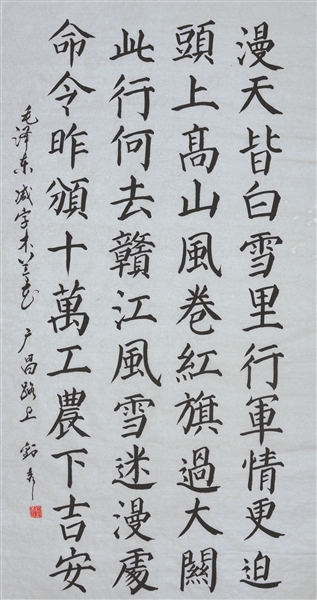 漫天皆白雪里行軍情更迫
頭上髙山風卷紅旗過大闗
此行何去贛江風雪迷漫處
命令昨頒十萬工農下吉安
毛泽东减字木兰花 广昌路上